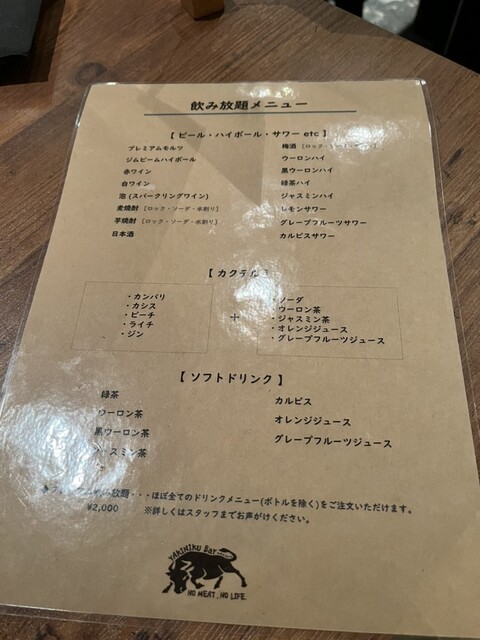 飲み放題メニュー
【 ビール・ハイボール・サワー etc 】
プレミアムモルツ
ジムビームハイボール
赤ワイン
白ワイン
泡 (スパークリングワイン)
麦焼酎 [ロック・ソーダ・水割り]
芋焼酎 [ロック・ソーダ・水割り]
日本酒
梅酒 [ロック・
ウーロンハイ
黒ウーロンハイ
緑茶ハイ
ジャスミンハイ
レモンサワー
グレープフルーツサワー
カルピスサワー
【 カクテル
・カンパリ
・カシス
・ピーチ
・ライチ
・ジン
+
・ソーダ
・ウーロン茶
・ジャスミン茶
・オレンジジュース
・グレープフルーツジュース
【 ソフトドリンク 】
緑茶
ウーロン茶
黒ウーロン茶
ジャスミン茶
カルピス
オレンジジュース
グレープフルーツジュース
飲み放題・・・ほぼ全てのドリンクメニュー(ボトルを除く)をご注文いただけます。
¥2,000 ※詳しくはスタッフまでお声がけください。
YAKINIKU Bar
NO MEAT, NO LIFE.